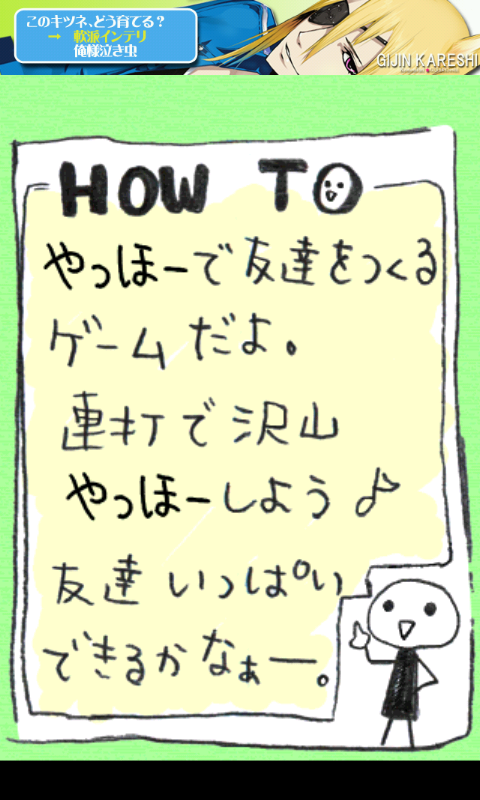 このキツネ、どう育てる？
→ 軟派インテリ
俺様泣き虫
GIJIN KARESHI
HOW TO
やっほーで友達をつくる
ゲームだよ。
連打で沢山
やっほーしよう♪
友達いっぱい
できるかなぁー。